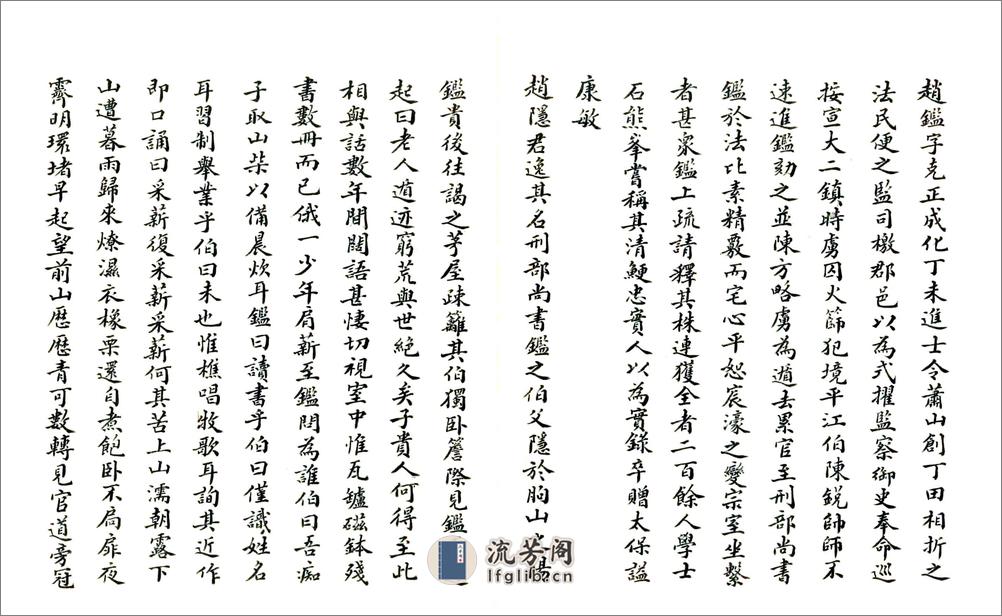 趙鑑字克正成化丁未進士令蕭山創丁田相折之
法民便之監司檄郡邑以為式擢監察御史奉命巡
按宣大二鎮時虜囚火篩犯境平江伯陳銳師師不
速進鑑劾之並陳方略虜為遁去累官至刑部尚書
鑑於法比素精覈而宅心平恕宸濠之變宗室坐繫
者甚衆鑑上疏請釋其株連獲全者二百餘人學士
石熊峯嘗稱其清鯁忠實人以為實錄卒贈太保謚
康敏
趙隱君逸其名刑部尚書鑑之伯父隱於朐山之陽
鑑貴後往謁之茅屋疎籬其伯獨卧簷際見鑑
起曰老人遁迹窮荒與世絕久矣子貴人何得至此
相與話數年間闊語甚悽切視室中惟瓦鑪磁鉢殘
書數冊而已俄一少年肩薪至鑑問為誰伯曰吾痴
子取山柴以備晨炊耳鑑曰讀書乎伯曰僅識姓名
耳習制舉業乎伯曰未也惟樵唱牧歌耳詢其近作
即口誦曰采薪復采薪采薪何其苦上山濡朝露下
山遭暮雨歸來燎濕衣橡栗還自煮飽卧不扃扉夜
霽明環堵早起望前山歷歷青可數轉見官道旁冠
流芳阁
lfglib.cn